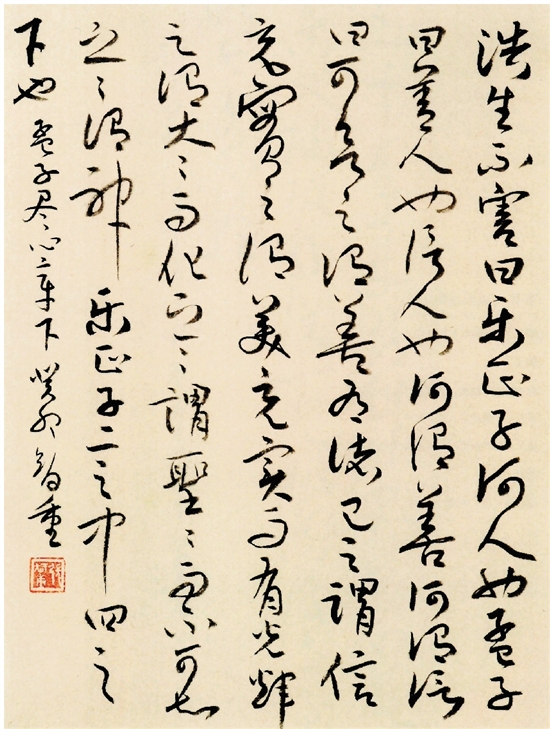 浩生不害曰乐正子何人也孟子
曰善人也信人也何谓善何谓信
曰可欲之谓善有诸己之謂信
充實之谓美充实而有光辉
之谓大〻而化之〻謂聖〻而不可知
之〻谓神 乐正子二之中四之
下也 孟子尽心章下 癸卯